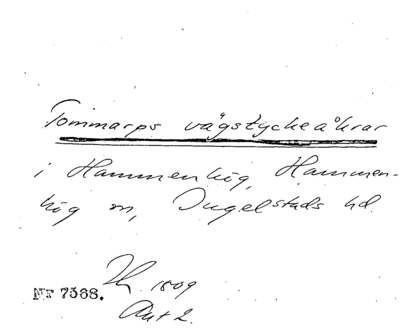 Tommarps vägstyckeåkrar
i Hammenhög, Hammen-
hög sn, Ingelstads hd.
Nr 7588. 1809
Akt 2.